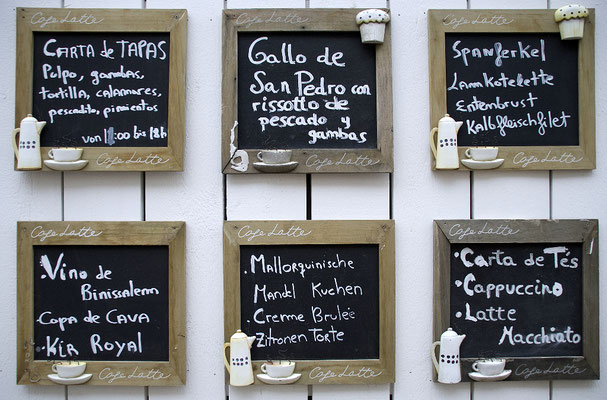 Cafe Latte
CARTA de TAPAS
Pulpo, gambas,
tortilla, calamares,
pescadito, pimientos
von 11:00 bis 18h
Cafe Latte
Cafe Latte
Gallo de
San Pedro con
rissotto de
pescado y
gambas
Cafe Latte
Cafe Latte
Spanferkel
Lammkotelette
Entenbrust
Kalbfleischfilet
Cafe Latte
Cafe Latte
.Vino de
Binissalem
.Copa de CAVA
.Kir Royal
Cafe Latte
Cafe Latte
.Mallorquinische
Mandel Kuchen
.Creme Brulée
.Zitronen Torte
Cafe Latte
Cafe Latte
.Carta de Tés
.Cappuccino
.Latte
Macchiato
Cafe Latte